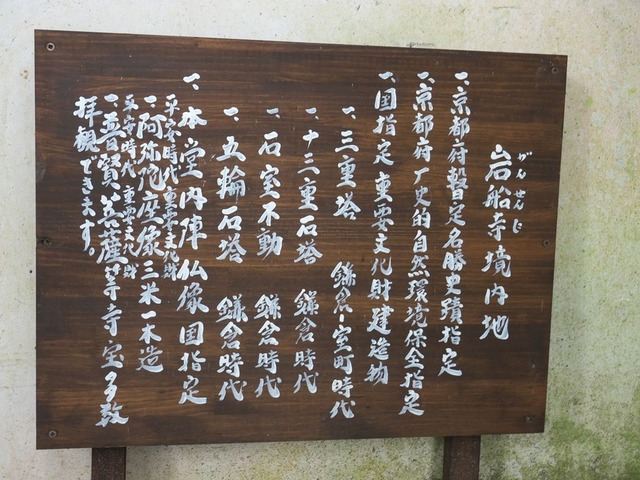 がんせんじ
岩船寺境内地
一、京都府暫定名勝史蹟指定
一、京都府歴史的自然環境保全指定
一、国指定重要文化財建造物
一、三重塔 鎌倉・室町時代
一、十三重石塔 鎌倉時代
一、石室不動 鎌倉時代
一、五輪石塔 鎌倉時代
一、本堂内陣仏像国指定
平安時代重要文化財
一、阿弥陀座像三米一木造
平安時代 重要文化財
一、普賢菩薩等寺宝多数
拝観できます。